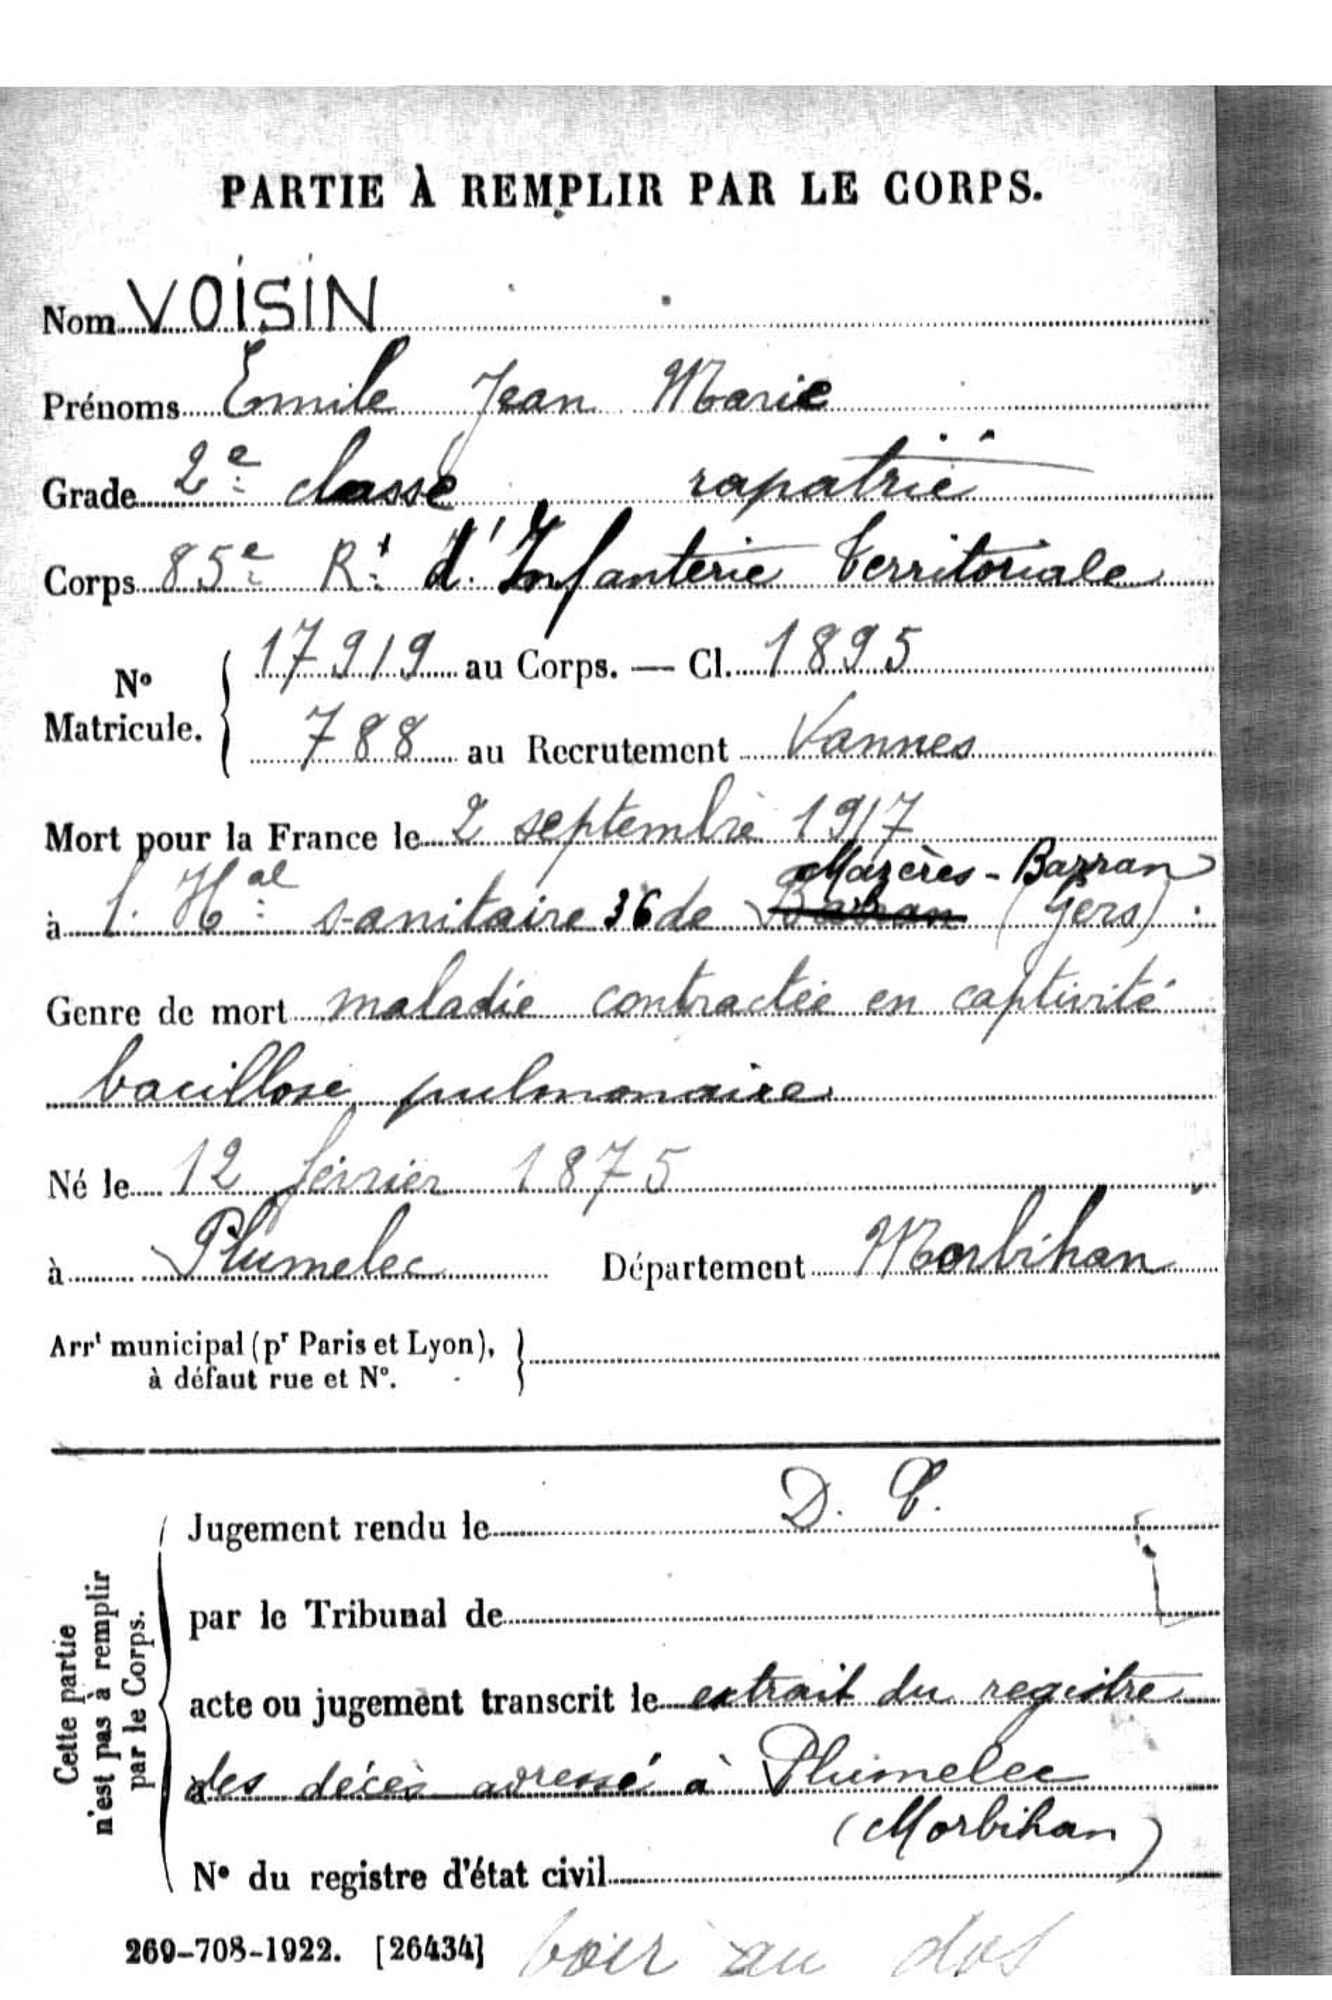 PARTIE À REMPLIR PAR LE CORPS.
Nom VOISIN
Prénoms Emile Jean Marie
Grade 2e classe rapatrié
Corps 85e Rt d'Infanterie Territoriale
No Matricule. { 17919 au Corps. — Cl. 1895
788 au Recrutement Vannes
Mort pour la France le 2 septembre 1917
Mazères-Barran
à l. Hal sanitaire 36 de Barran (Gers).
Genre de mort maladie contractée en captivité
bacillose pulmonaire
Né le 12 février 1875
à Plumelec Département Morbihan
Arrt municipal (pr Paris et Lyon), }
à défaut rue et No.
Cette partie
n'est pas à remplir
par le Corps.
D.
Jugement rendu le
par le Tribunal de
acte ou jugement transcrit le extrait du registre
à des décès adressé à Plumelec
(Morbihan)
No du registre d'état civil
269-708-1922. [26434] voir au dos